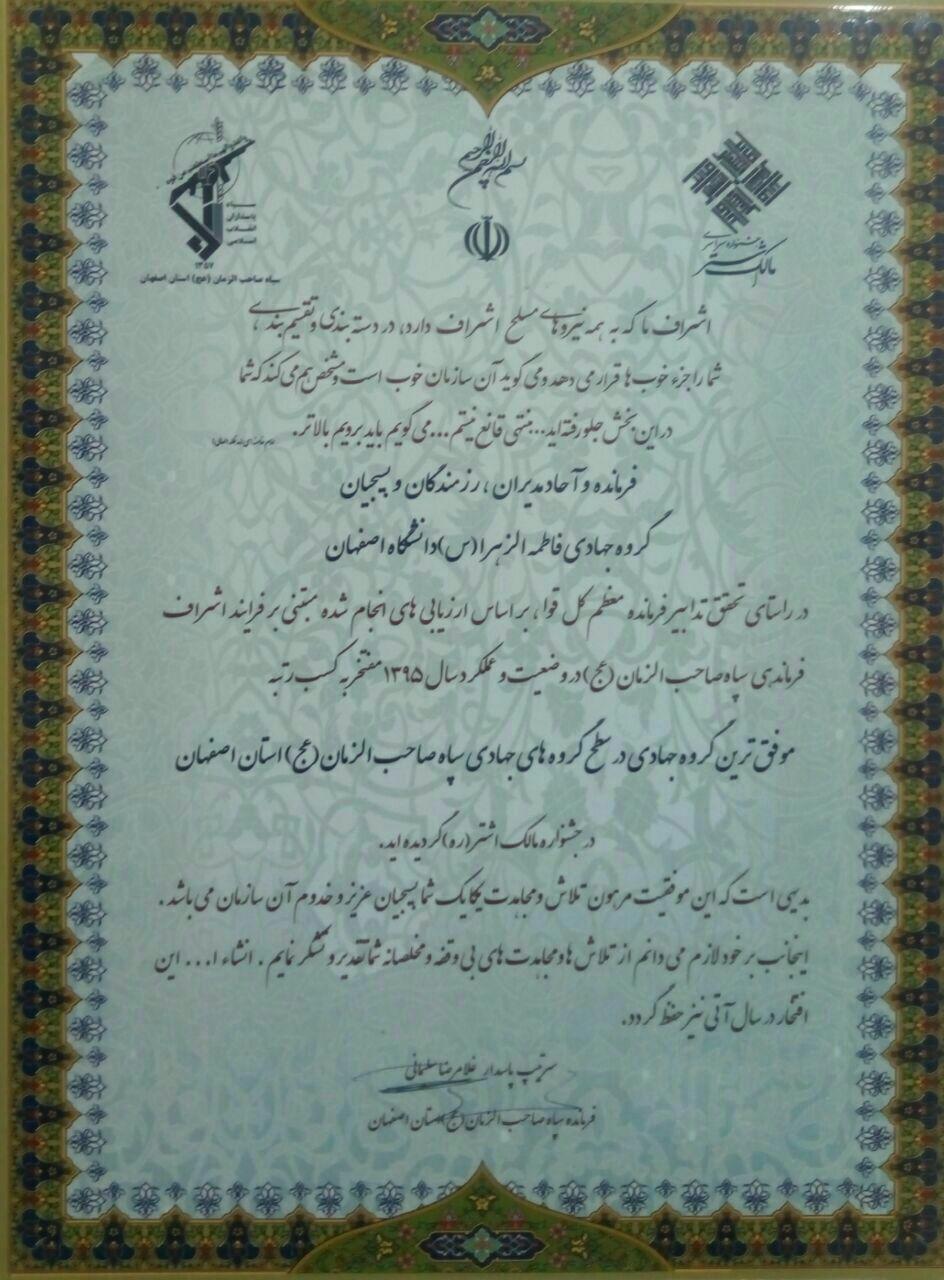 بسم الله الرحمن الرحیم
جشنواره سراسری
مالک اشتر
سپاه
پاسداران
انقلاب
اسلامی
۱۳۵۷
سپاه صاحب الزمان (عج) استان اصفهان
اشراف ما که به همه نیروهای مسلح اشراف دارد، در دسته بندی و تقسیم بندی،
شما را جزء خوب ها قرار می دهد و می گوید آن سازمان خوب است و مشخص هم می کند که شما
در این بخش جلو رفته اید... منتهی قانع نیستم... می گویم باید برویم بالاتر.
فرمانده و آحاد مدیران، رزمندگان و بسیجیان
گروه جهادی فاطمه الزهرا (س) دانشگاه اصفهان
در راستای تحقق تدابیر فرمانده معظم کل قوا، بر اساس ارزیابی های انجام شده مبتنی بر فرایند اشراف
فرماندهی سپاه صاحب الزمان (عج) در وضعیت و عملکرد سال ۱۳۹۵ مفتخر به کسب رتبه
موفق ترین گروه جهادی در سطح گروه های جهادی سپاه صاحب الزمان (عج) استان اصفهان
در جشنواره مالک اشتر (ره) گردیده اید.
بدیهی است که این موفقیت مرهون تلاش و مجاهدت یکایک شما بسیجیان عزیز و خدوم آن سازمان می باشد.
اینجانب بر خود لازم می دانم از تلاش ها و مجاهدت های بی وقفه و مخلصانه شما تقدیر و تشکر نمایم. انشاء ا... این
افتخار در سال آتی نیز حفظ گردد.
سرتیپ پاسدار غلامرضا سلیمانی
فرمانده سپاه صاحب الزمان (عج) استان اصفهان